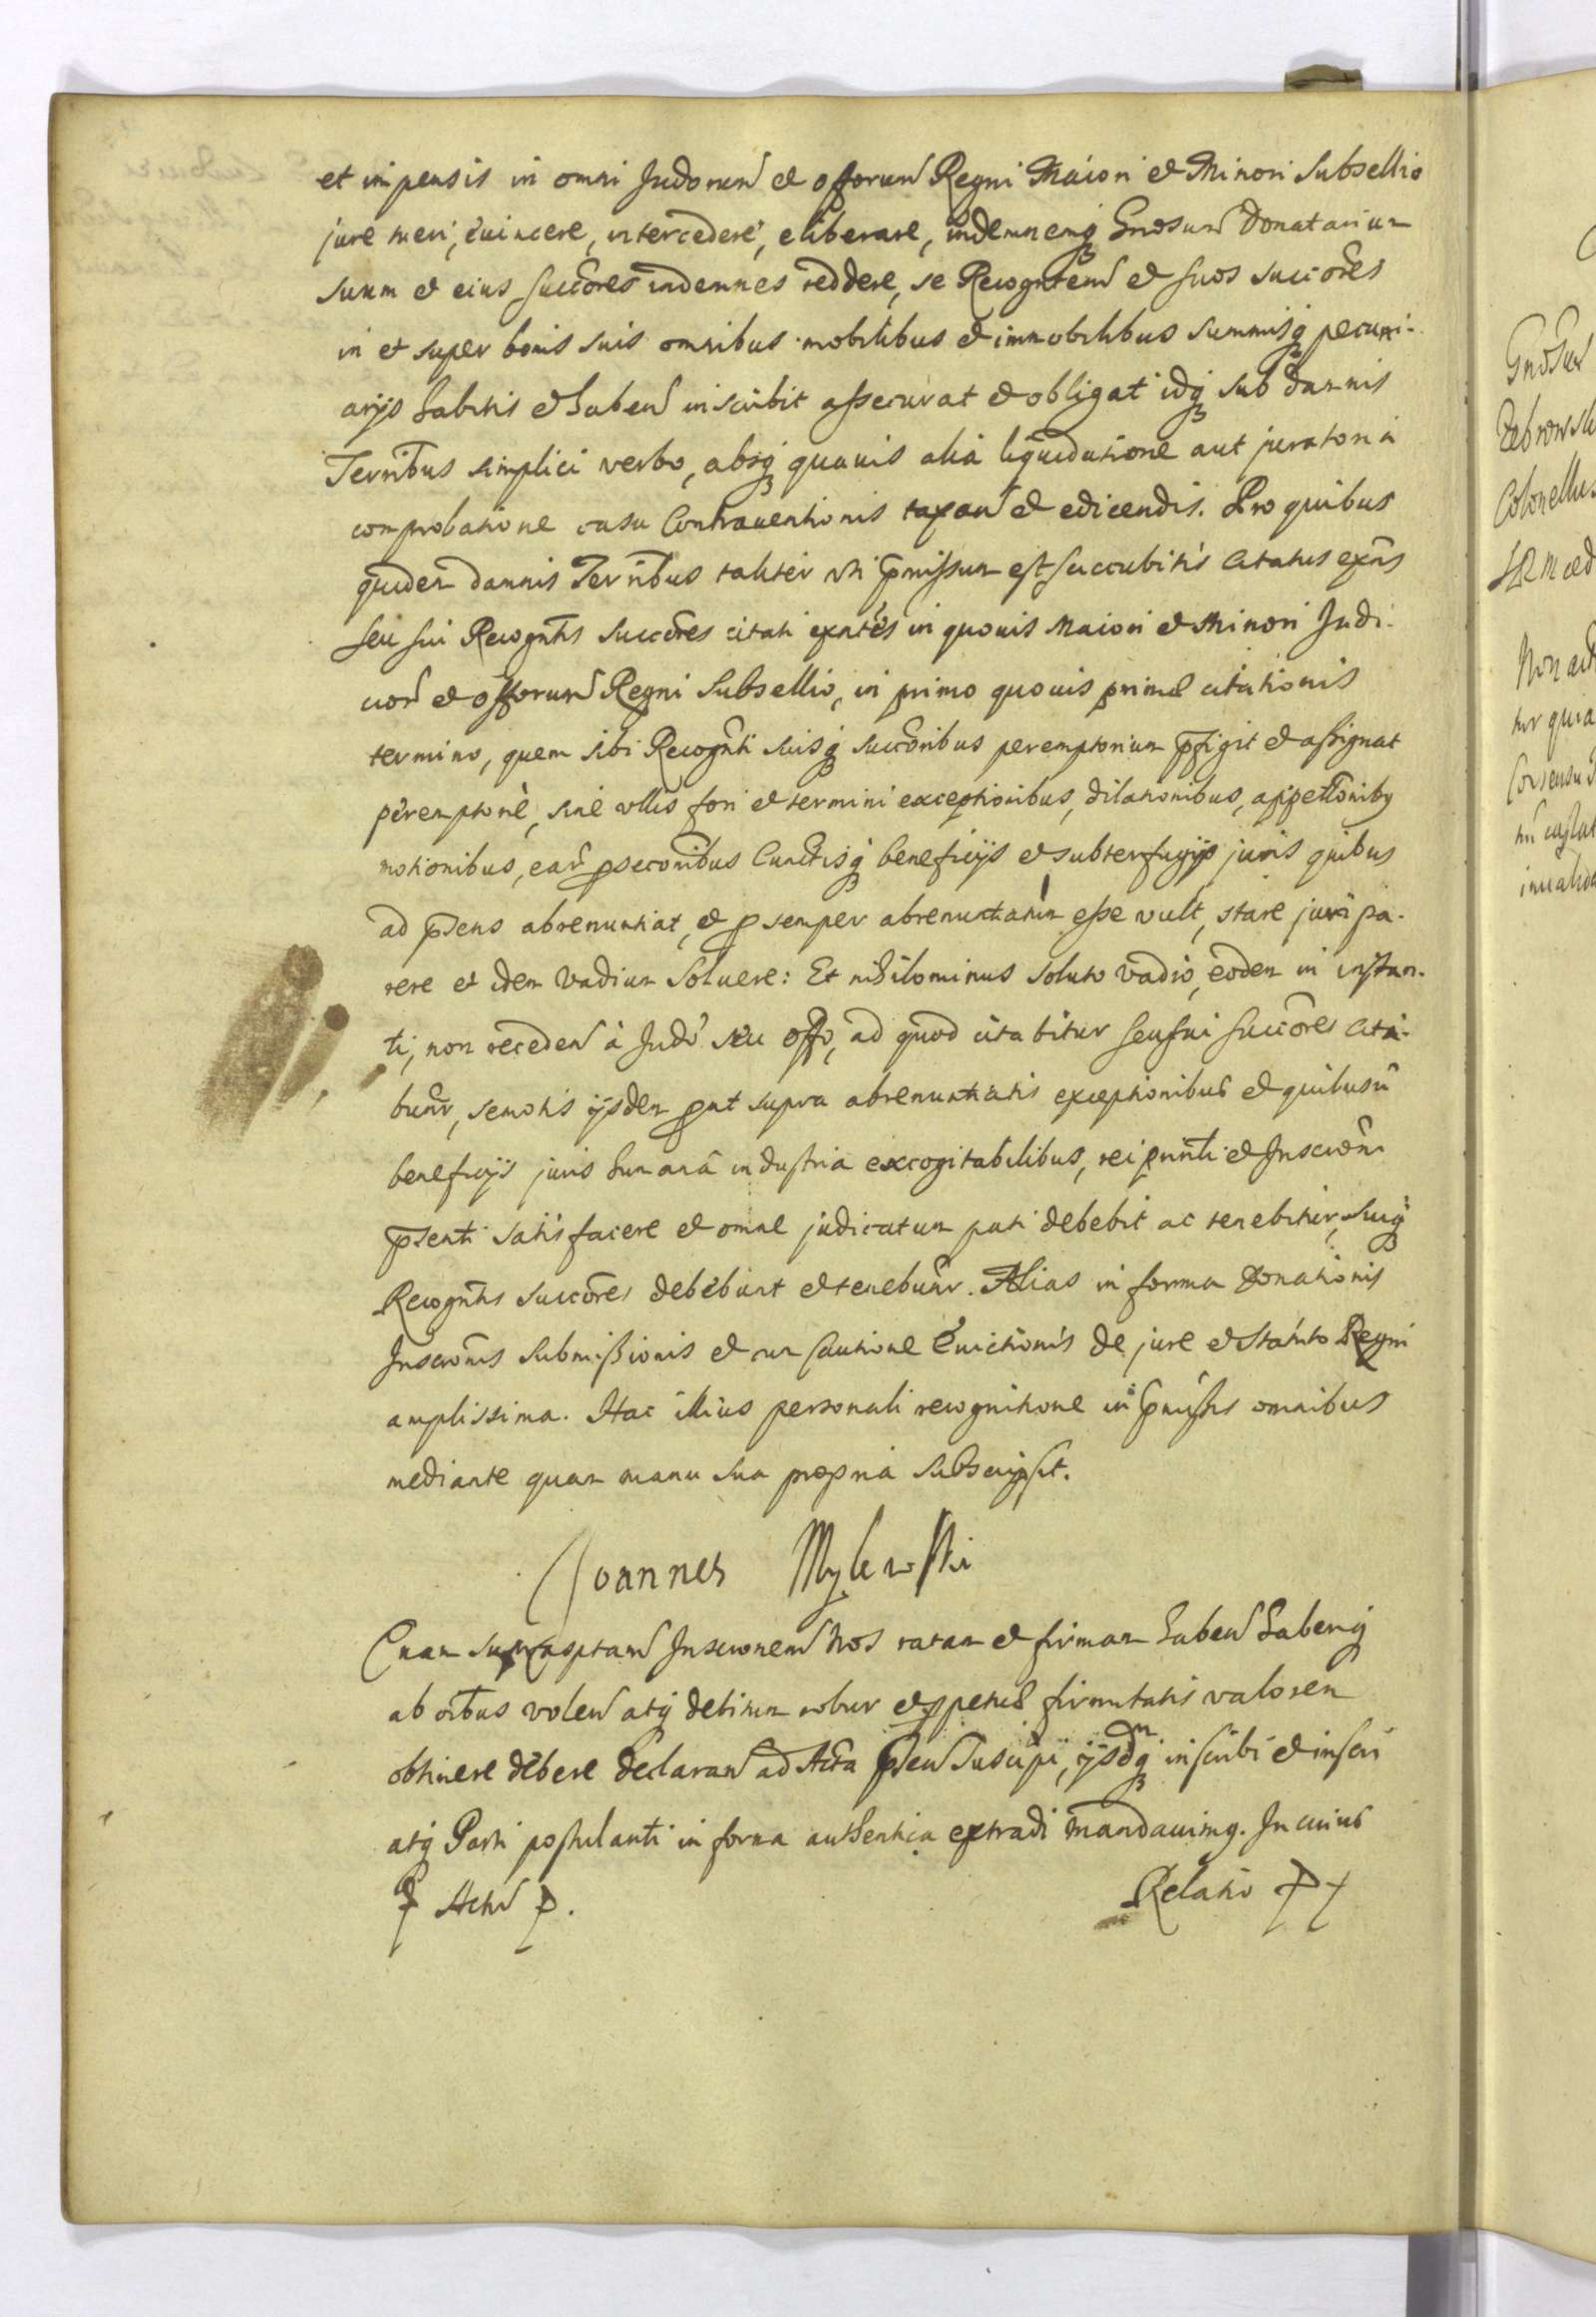 et impensis in omni Judorum et offorum Regni Maiori et Minori Subsellio
jure tueri, euincere, intercedere, eliberare, indemnemq Gnosum Donatarium
suum et eius succores indemnes reddere, se Recognten et suos succores
in et super bonis suis omnibus mobilibus et immobilibus summisq pecuni-
arijs habitis et haben inscribit assecurat et obligat idq sub damnis
Terribus simplici verbo, absq quauis alia liquidatione aut juratoria
comprobatione casu Contrauentionis taxan et edicendis. Pro quibus
quidem damnis Terribus taliter uti pmissum est succubitis Citatus exns
seu sui Recogntis succores citati exntes in quouis Maiori et Minori Judi-
cior et offorum Regni Subsellio, in primo quouis primae citationis
termino, quem sibi Recognti suisq succoribus peremptorium pfigit et assignat
peremptorie, sine ullis fori et termini exceptionibus, dilationibus, appellonibq
motionibus, ear psecoribus Cunctisq beneficijs et subterfugijs juris quibus
ad psens abrenuntiat, et p semper abrenuntiatum esse vult, stare juri pa-
rere et idem Vadium Soluere: Et nihilominus soluto vadio, eodem in instan-
ti, non receden à Judo seu offo, ad quod citabitur seu sui succores cita-
buntr, semotis ijsdem put supra abrenuntiatis exceptionibus et quibusus
beneficijs juris humanâ industria excogitabilibus, rei pnnti et Inscroni
psenti satisfacere et omne judicatum pati debebit ac tenebitur, suiq
Recogntis succores debebunt et tenebuntr. Alias in forma Donationis
Inscronis Submissionis et cum Cautione Euictionis de jure et Statuto Regni
amplissima. Hac illius personali recognitione in pmissis omnibus
mediante quam manu sua propria subscripsit.
Joannes Mylewski
Quam suprasptam Inscronem Nos ratam et firmam haben haberiq
ab oibus volen atq debitum robur et ppetuae firmitatis valorem
obtinere debere declaran ad Acta psen Suscipi, ijsdmq inscribi et inseri
atq Parti postulanti in forma authentica extradi mandauimq. In cuius
P Actu P. Relatio P
Gnosus
Colonellus